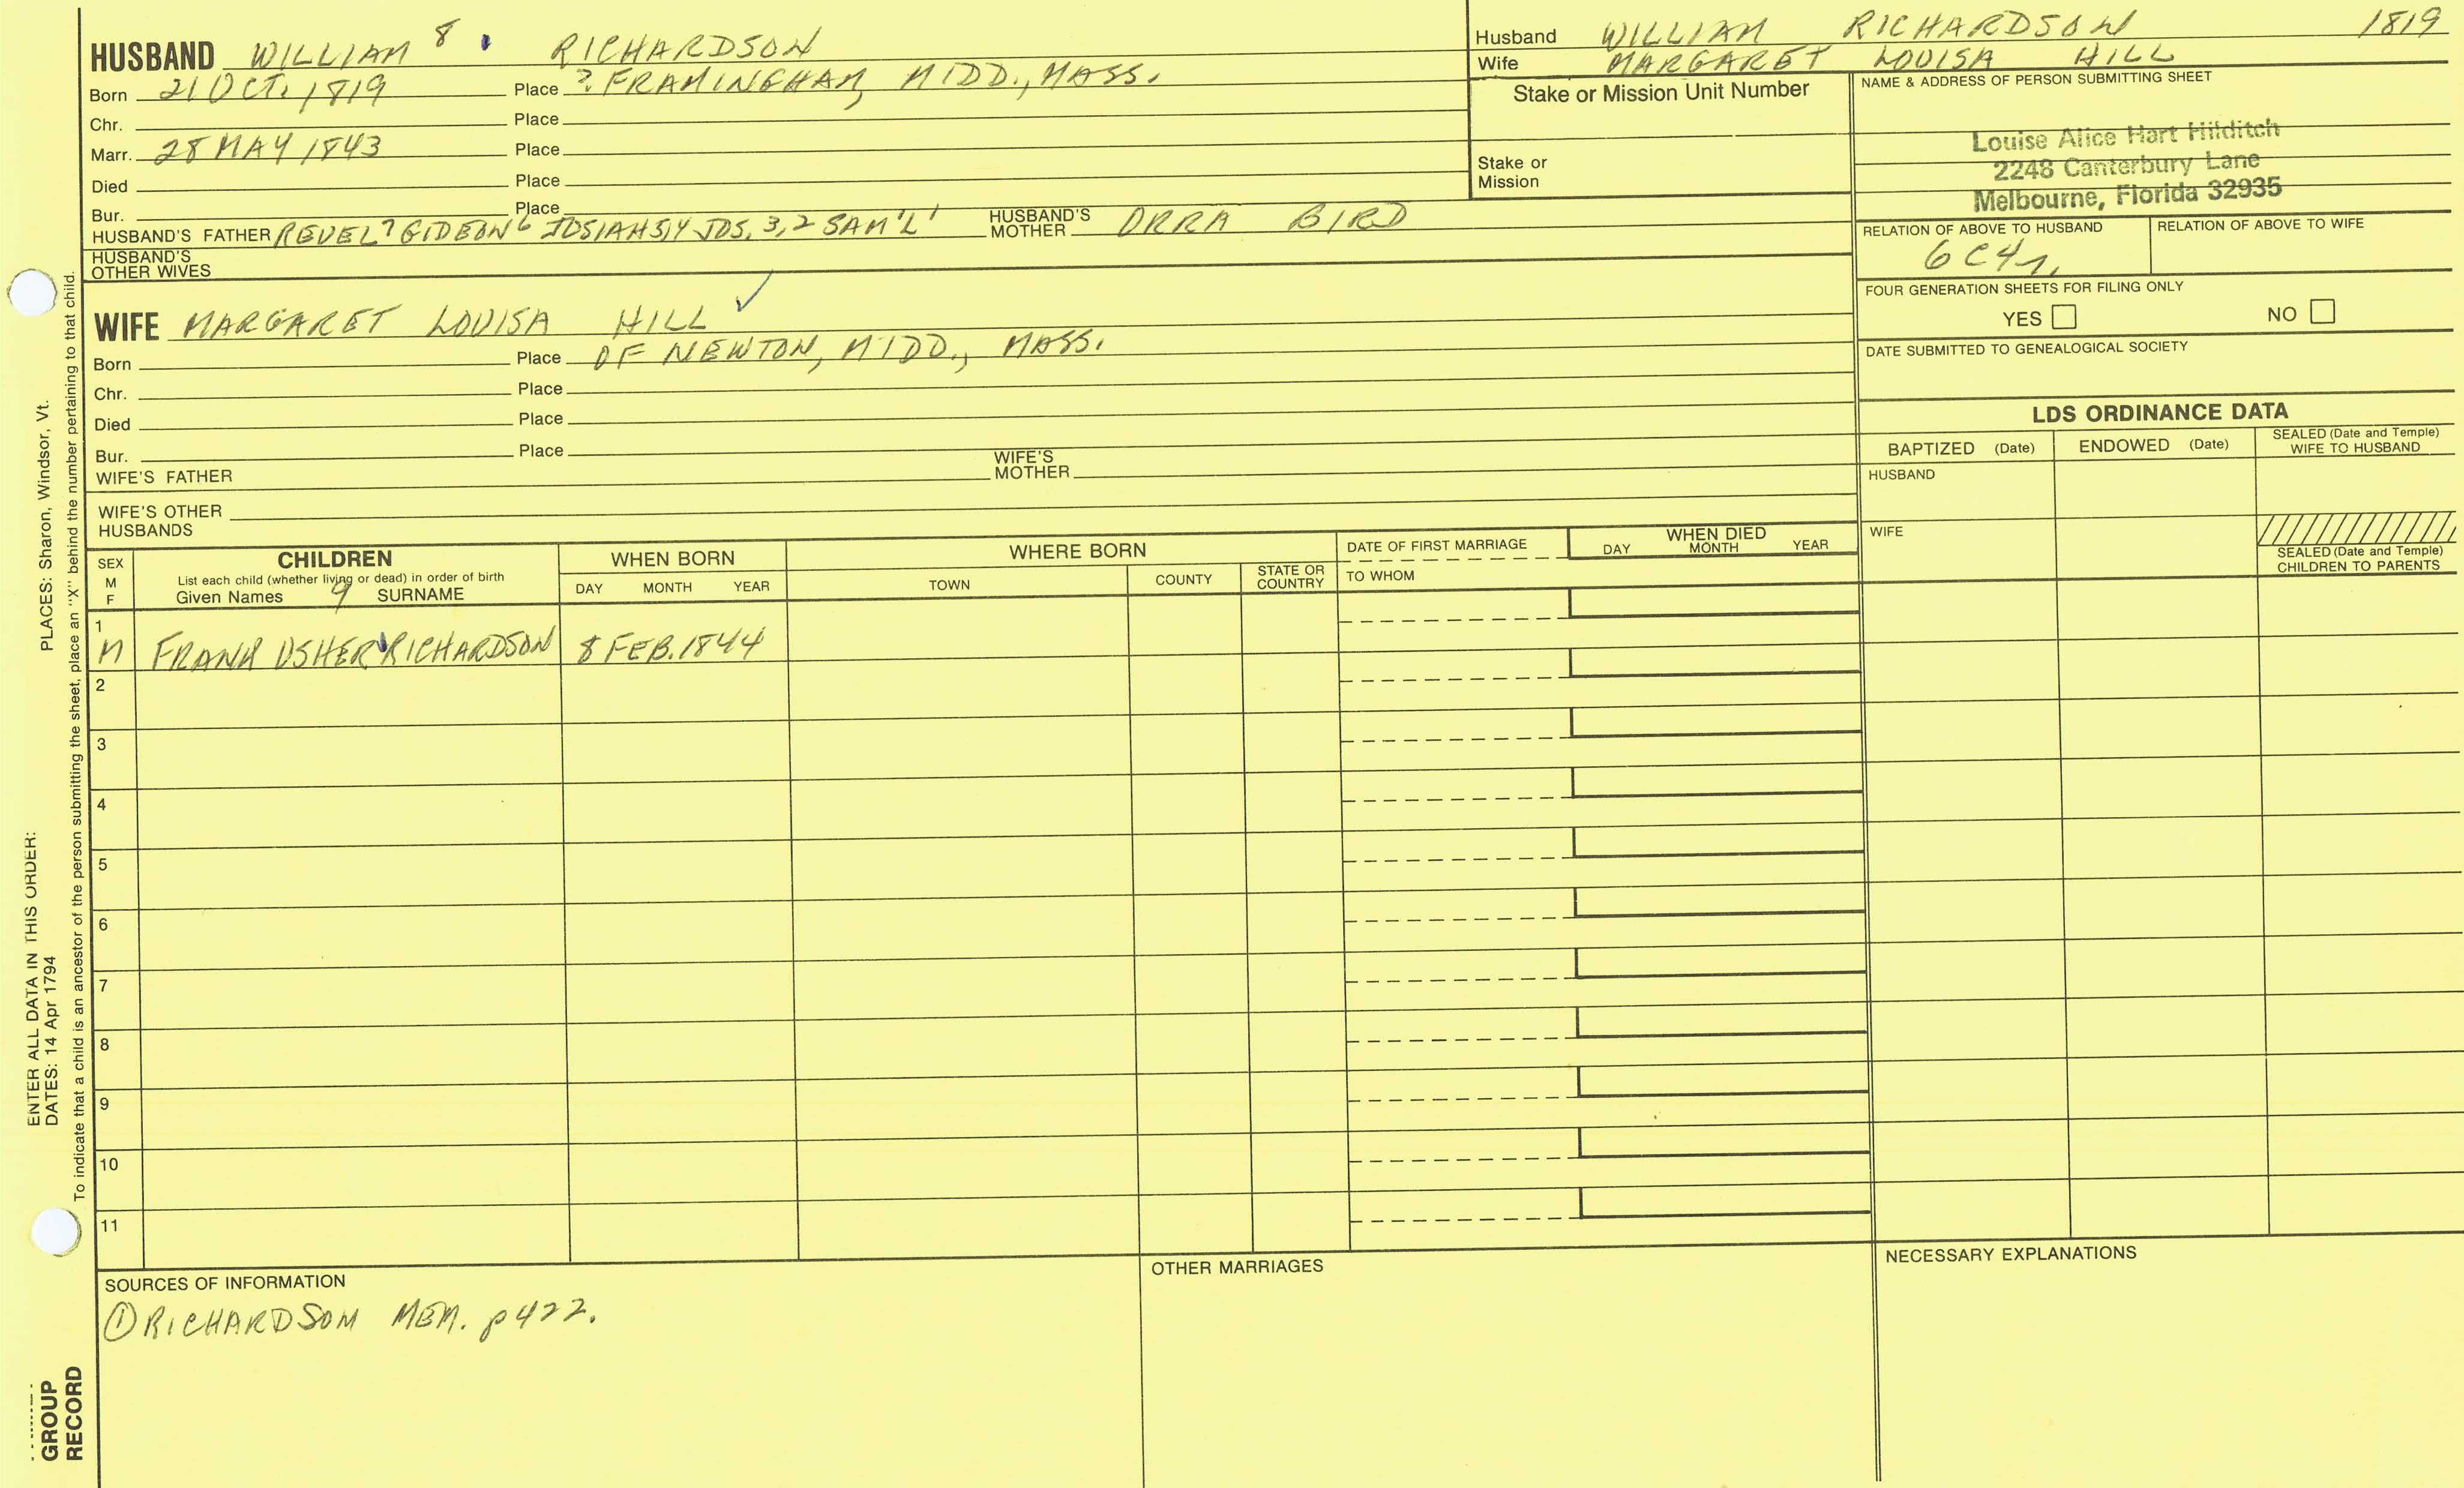 HUSBAND WILLIAM 8 RICHARDSON
Born 21 OCT. 1819 Place ? FRAMINGHAM, MIDD., MASS.
Chr. Place
Marr. 28 MAY 1843 Place
Died Place
Bur. Place
HUSBAND'S FATHER REUEL 7 GIDEON 6 JOSIAH 5,4 JOS. 3,2 SAM'L 1 HUSBAND'S MOTHER ORRA BIRD
HUSBAND'S OTHER WIVES
Husband WILLIAM RICHARDSON 1819
Wife MARGARET LOUISA HILL
Stake or Mission Unit Number
Stake or
Mission
NAME & ADDRESS OF PERSON SUBMITTING SHEET
Louise Alice Hart Hilditch
2248 Canterbury Lane
Melbourne, Florida 32935
RELATION OF ABOVE TO HUSBAND RELATION OF ABOVE TO WIFE
6C4r.
FOUR GENERATION SHEETS FOR FILING ONLY
YES NO
DATE SUBMITTED TO GENEALOGICAL SOCIETY
WIFE MARGARET LOUISA HILL ✓
Born Place OF NEWTON, MIDD., MASS.
Chr. Place
Died Place
Bur. Place
WIFE'S FATHER WIFE'S MOTHER
WIFE'S OTHER
HUSBANDS
LDS ORDINANCE DATA
BAPTIZED (Date) ENDOWED (Date) SEALED (Date and Temple) WIFE TO HUSBAND
HUSBAND
WIFE
SEALED (Date and Temple)
CHILDREN TO PARENTS
SEX M F CHILDREN WHEN BORN WHERE BORN DATE OF FIRST MARRIAGE WHEN DIED
List each child (whether living or dead) in order of birth
Given Names 9 SURNAME DAY MONTH YEAR TOWN COUNTY STATE OR COUNTRY TO WHOM DAY MONTH YEAR
1
M FRANK USHER RICHARDSON 8 FEB. 1844
2
3
4
5
6
7
8
9
10
11
SOURCES OF INFORMATION
① RICHARDSON MEM. p422.
OTHER MARRIAGES
NECESSARY EXPLANATIONS
ENTER ALL DATA IN THIS ORDER:
DATES: 14 Apr 1794 PLACES: Sharon, Windsor, Vt.
To indicate that a child is an ancestor of the person submitting the sheet, place an "X" behind the number pertaining to that child.
GROUP
RECORD